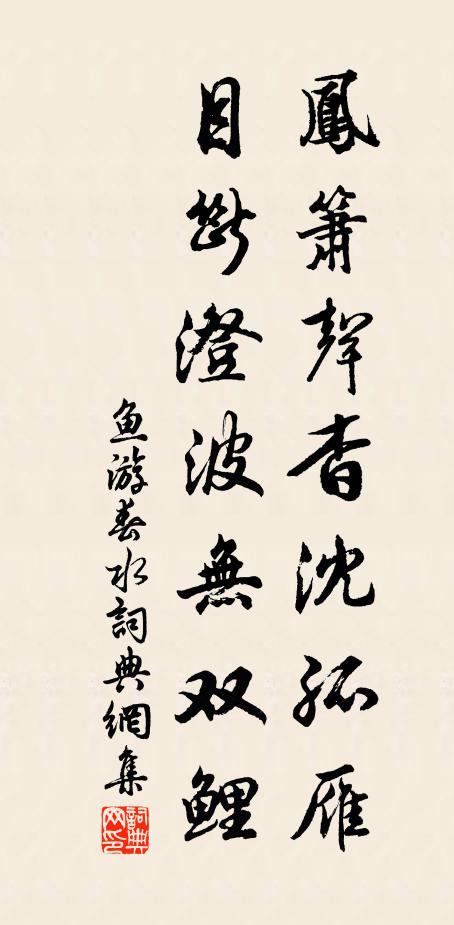 鳳簫聲杳沈孤雁
目斷澄波無双鯉
魚游春水詞典網集
詞典网印